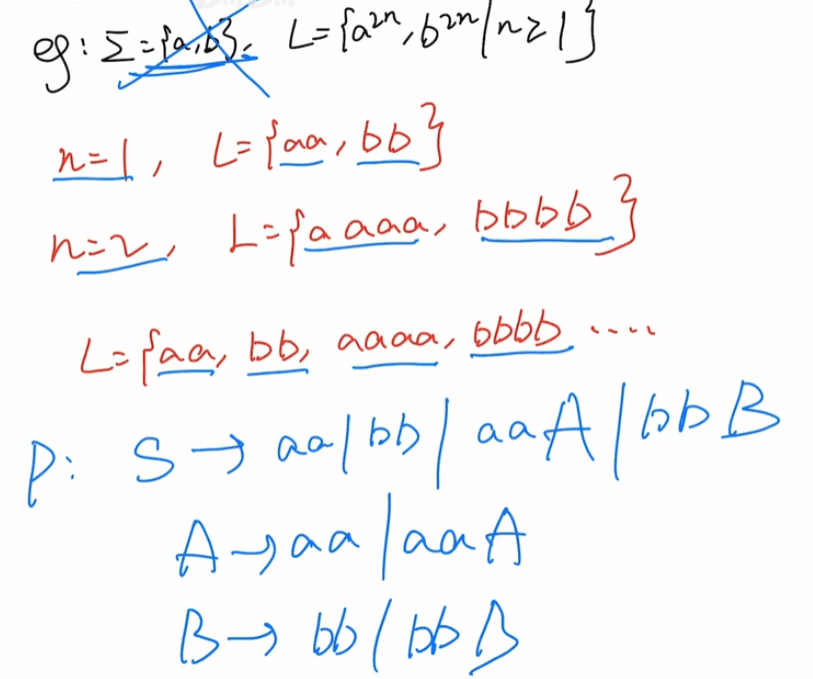 eg: Σ={a,b}, L={a²ⁿ, b²ⁿ|n≥1}
n=1, L={aa, bb}
n=2, L={aaaa, bbbb}
L={aa, bb, aaaa, bbbb ....
P: S→aa|bb|aaA|bbB
A→aa|aaA
B→bb|bbB